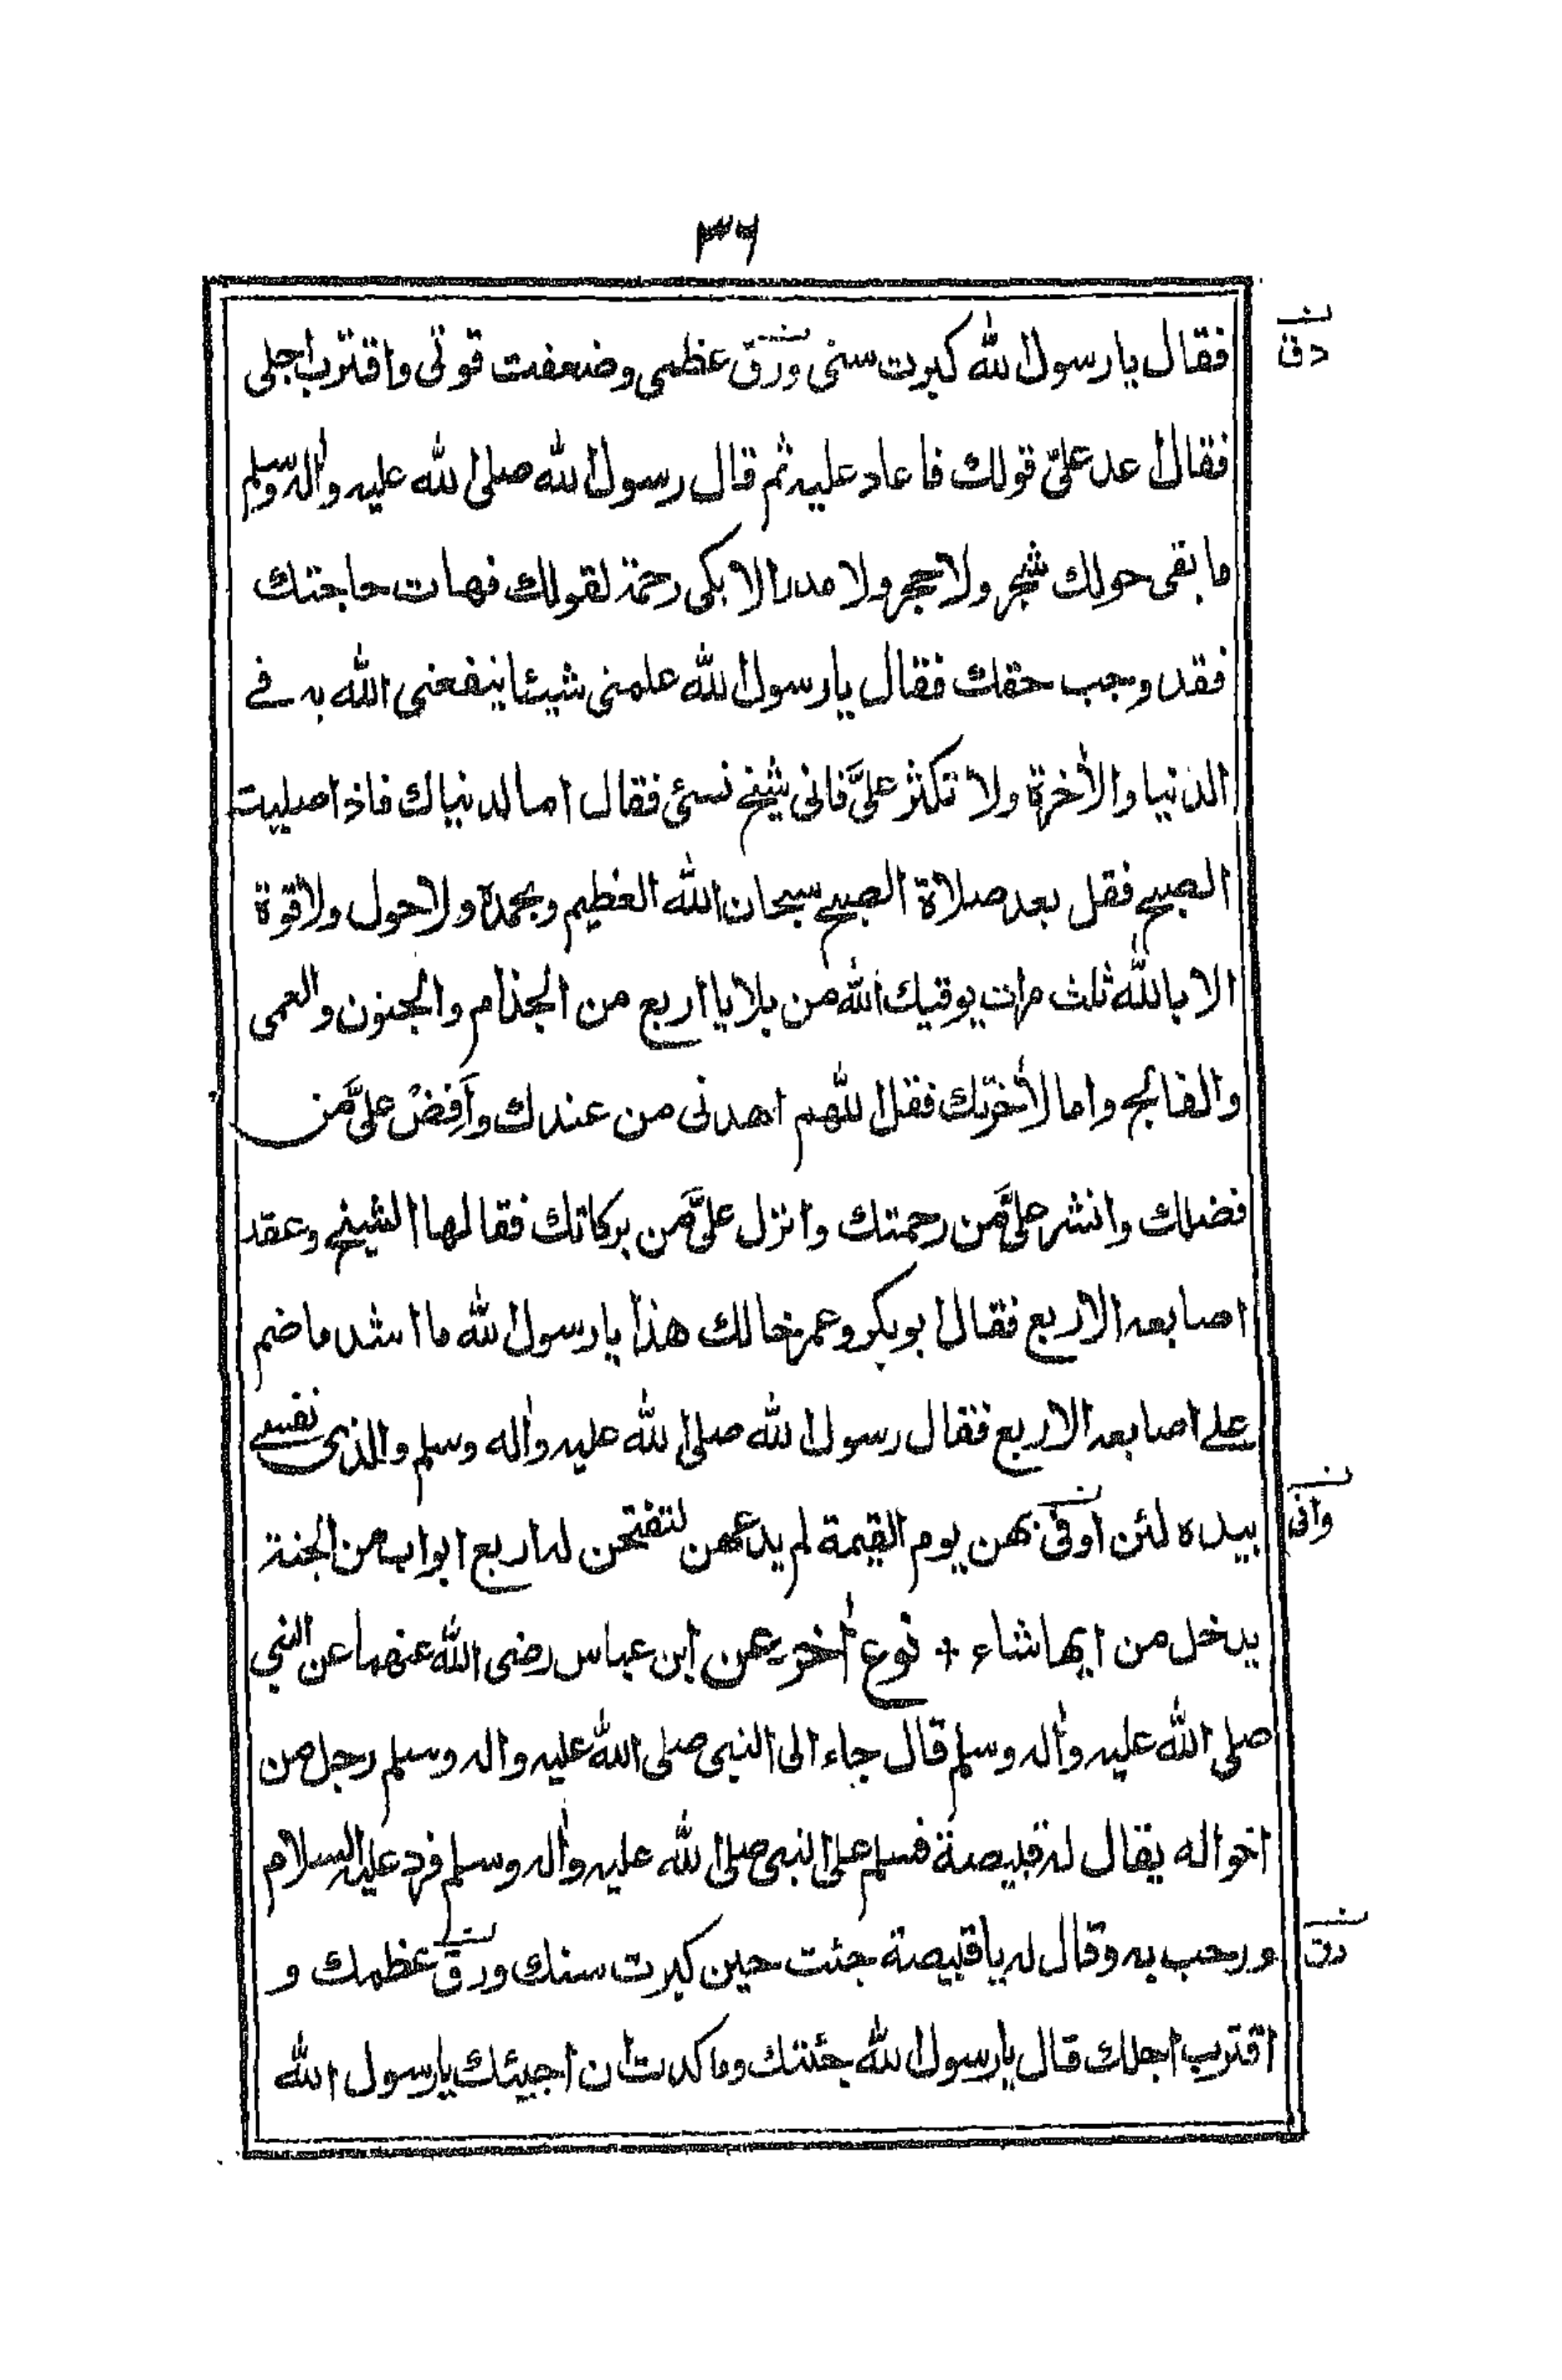 ٣٦
فقال يا رسول الله كبرت سنى ورق عظمى وضعفت قوتى واقترب اجلى
دق
فقال عد علىّ قولك فاعاد عليه ثم قال رسول الله صلى الله عليه واٰله وسلم
ما بقى حولك شجر ولا حجر ولا مدر الا بكى رحمة لقولك فهات حاجتك
فقد وجب حقك فقال يا رسول الله علمنى شيئا ينفعنى الله به فى
الدنيا والاٰخرة ولا تكثر علىَّ فانى شيخ نسئ فقال اما لدنياك فاذا صليت
الصبح فقل بعد صلاة الصبح سبحان الله العظيم وبحمده ولا حول ولا قوة
الا بالله ثلث مرات يوقيك الله من بلايا اربع من الجذام والجنون والعمى
والفالج واما لاٰخرتك فقل اللهم اهدنى من عندك وَاَفِضْ علىَّ من
فضلك وانشر علىَّ من رحمتك وانزل علىَّ من بركاتك فقالها الشيخ وعقد
اصابعه الاربع فقال ابو بكر وعمر خالك هذا يا رسول الله ما اشد ما ضم
على اصابعه الاربع فقال رسول الله صلى الله عليه واٰله وسلم والذى نفسى
بيده لئن اوفى بهن يوم القيمة لم يدعهن لتفتحن له اربع ابواب من الجنة
وافى
يدخل من ايها شاء + نوع اٰخر عن ابن عباس رضى الله عنهما عن النبي
صلى الله عليه واٰله وسلم قال جاء الى النبى صلى الله عليه واله وسلم رجل من
اخواله يقال له قبيصة فسلم على النبى صلى الله عليه واٰله وسلم فرد عليه السلام
ورحب به وقال له يا قبيصة جئت حين كبرت سنك ورق عظمك و
دق
اقترب اجلك قال يا رسول الله جئتك وما كدت ان اجيئك يا رسول الله